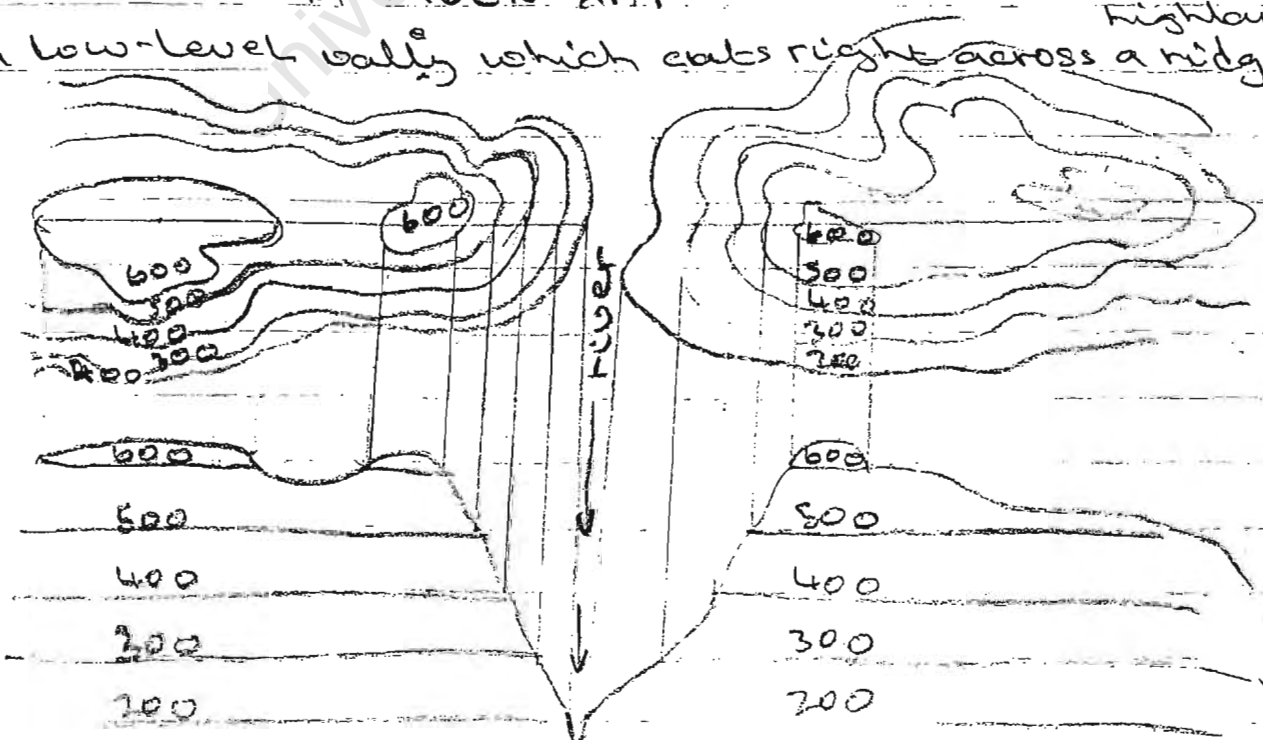 a low-level vally which cuts right across a ridg
600
600
600
600
500
500
400
400
300
300
200
river
600
600
500
500
400
400
300
300
200
200